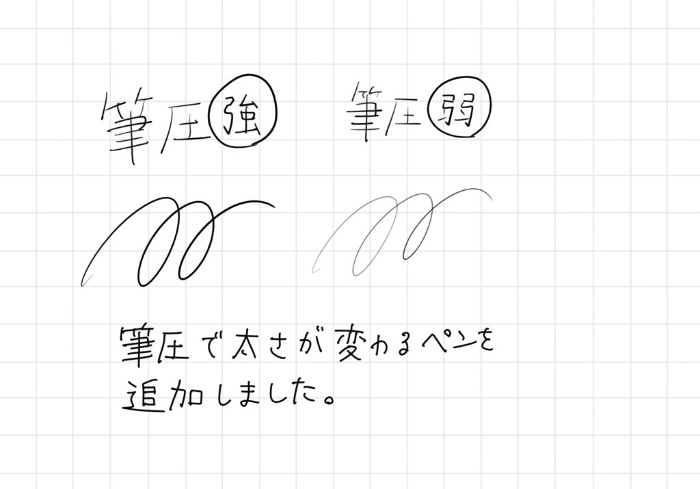 筆圧強 筆圧弱
筆圧で太さが変わるペンを
追加しました。